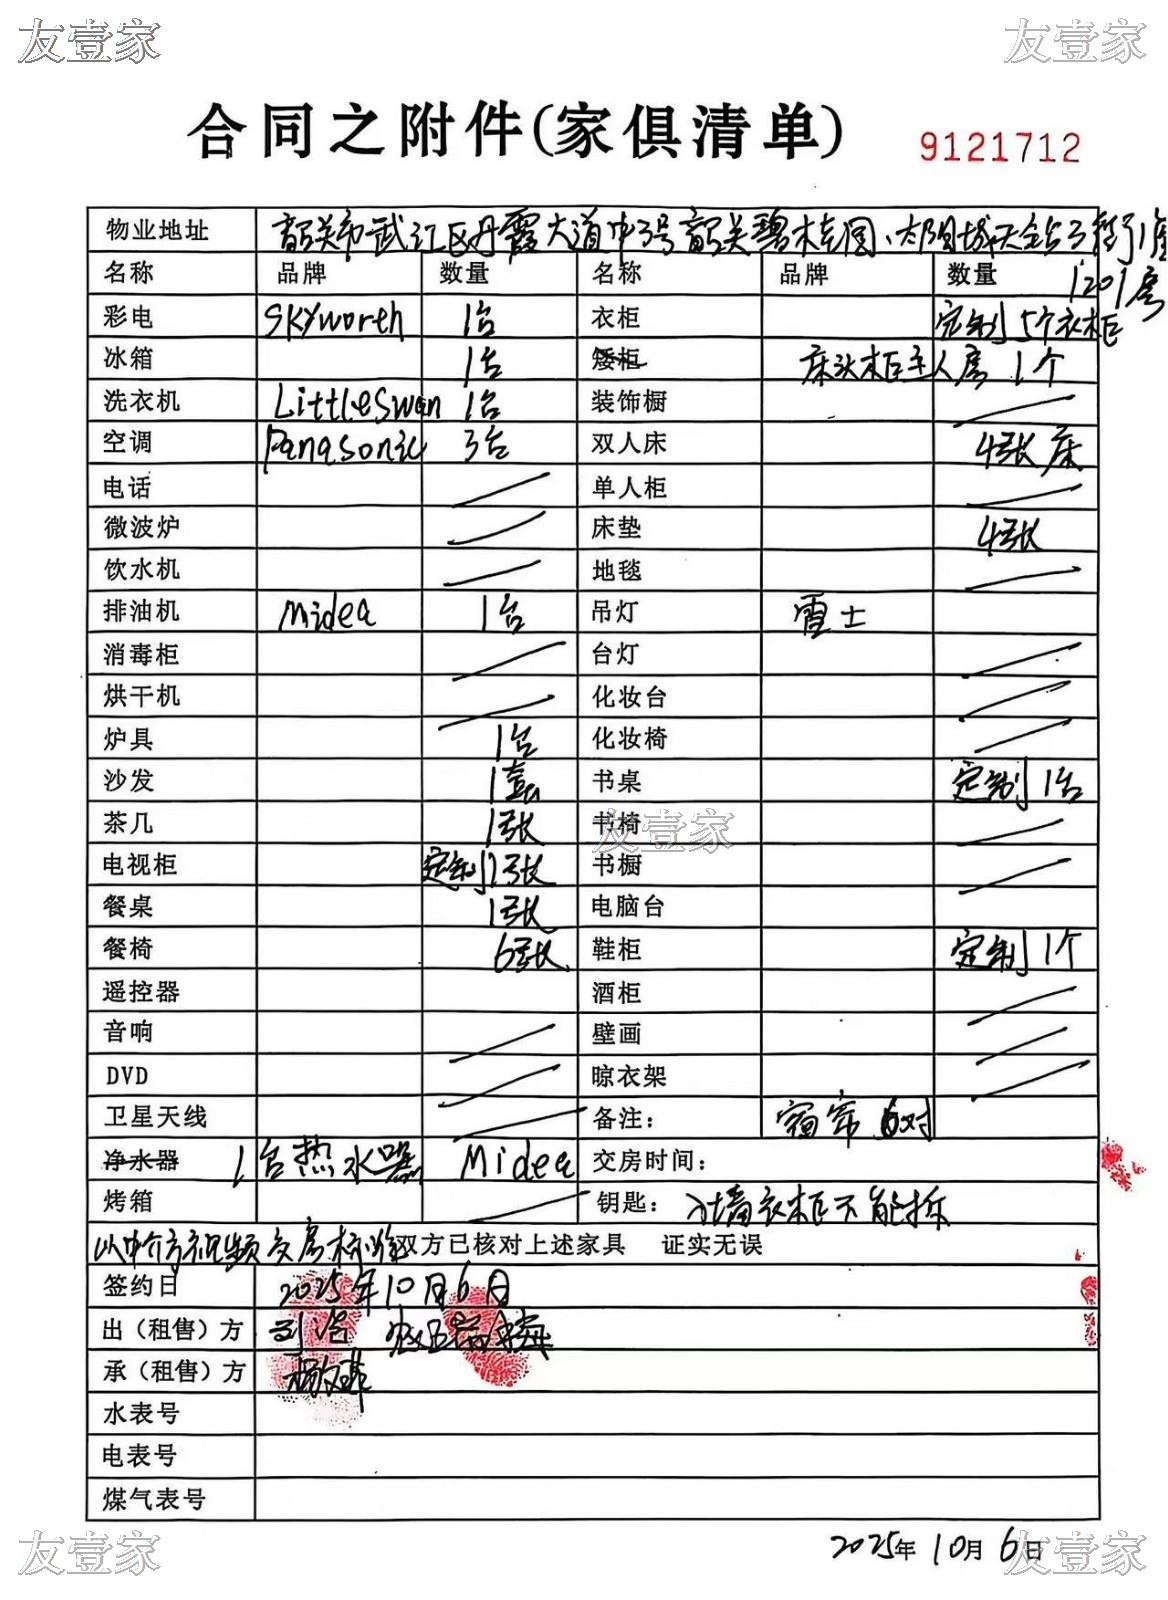 友壹家 友壹家
合同之附件(家俱清单) 9121712
物业地址 韶关市武江区丹霞大道中3号韶关碧桂园、太阳城天
1201房
名称 品牌 数量 名称 品牌 数量
彩电 SKYworth 1台 衣柜 定制5个衣柜
冰箱 1台 矮柜 床头柜主人房 1个
洗衣机 LittleSwan 1台 装饰橱
空调 Panasonic 3台 双人床 4张床
电话 单人柜
微波炉 床垫 4张
饮水机 地毯
排油机 Midea 1台 吊灯 雷士
消毒柜 台灯
烘干机 化妆台
炉具 1台 化妆椅
沙发 1套 书桌 定制1台
茶几 1张 书椅 友壹家
电视柜 定制1张 书橱
餐桌 1张 电脑台
餐椅 6张 鞋柜 定制1个
遥控器 酒柜
音响 壁画
DVD 晾衣架
卫星天线 备注: 窗帘 6对
净水器 1台热水器 Midea 交房时间:
烤箱 钥匙: 墙衣柜不能拆
以中介方视频交房标准 双方已核对上述家具 证实无误
签约日 2025年10月6日
出（租售）方
承（租售）方
水表号
电表号
煤气表号
2025年10月6日
友壹家 友壹家